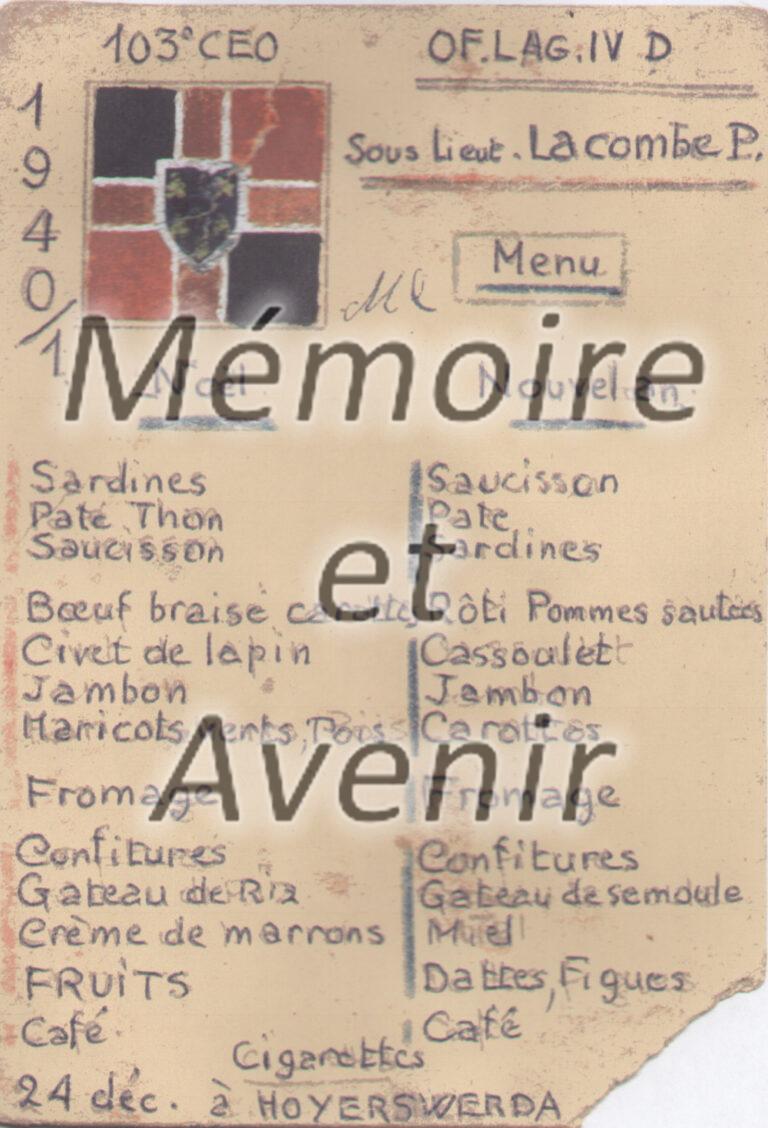 103° CEO
OF.LAG.IV D
1940/1
Sous Lieut. Lacombe P.
Menu
Mémoire
et
Avenir
Noël
Sardines
Paté Thon
Saucisson
Bœuf braisé carottes
Civet de lapin
Jambon
Haricots verts, Pois
Fromage
Confitures
Gateau de Riz
Crème de marrons
FRUiTS
Café
Nouvel an
Saucisson
Pate
Sardines
Rôti Pommes sautées
Cassoulet
Jambon
Carottes
Fromage
Confitures
Gateau de semoule
Miel
Dattes, Figues
Café
Cigarettes
24 déc. à HOYERSWERDA